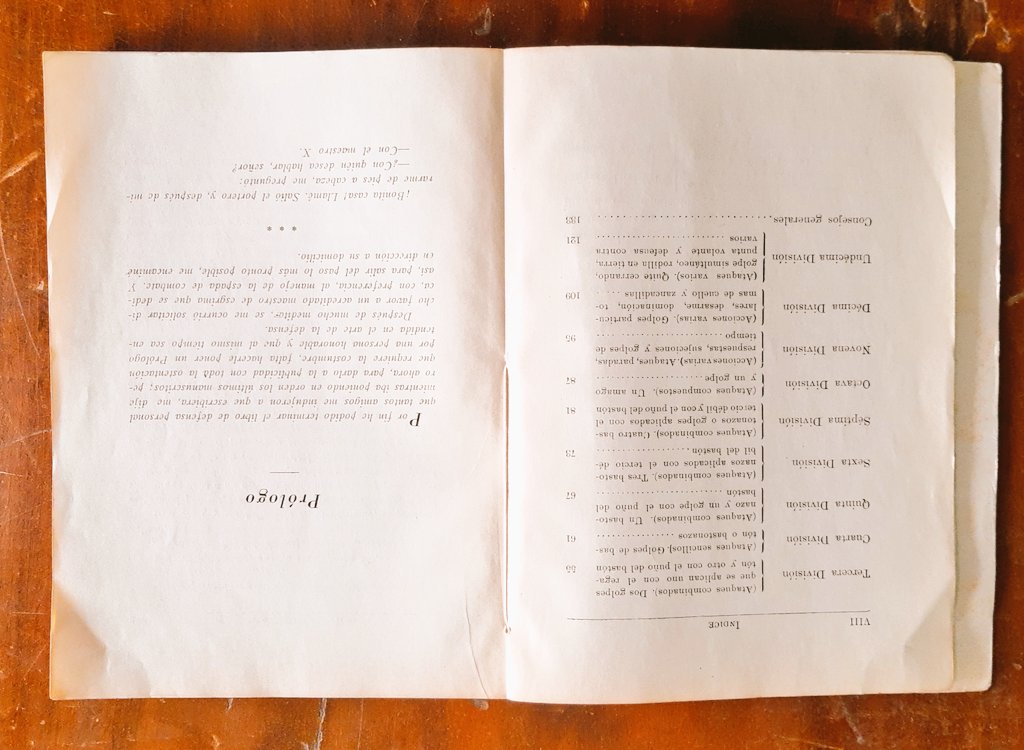 VIII INDICE
(Ataques combinados). Dos golpes
Tercera División que se aplican uno con el rega-
tón y otro con el puño del bastón 55
Cuarta División (Ataques sencillos). Golpes de bas-
tón o bastonazos . . . . . . . . . . . . . 61
(Ataques combinados). Un basto-
Quinta División nazo y un golpe con el puño del
bastón . . . . . . . . . . . . . . . . . . . . 67
(Ataques combinados). Tres basto-
Sexta División nazos aplicados con el tercio dé-
bil del bastón . . . . . . . . . . . . . . . 73
(Ataques combinados). Cuatro bas-
Séptima División tonazos o golpes aplicados con el
tercio débil y con el puño del bastón 81
Octava División (Ataques compuestos). Un amago
y un golpe . . . . . . . . . . . . . . . . . 87
(Acciones varias). Ataques, paradas,
Novena División respuestas, sujeciones y golpes de
tiempo . . . . . . . . . . . . . . . . . . . . 95
(Acciones varias). Golpes particu-
Décima División lares, desarme, dominación, to-
mas de cuello y zancadillas . . . . 109
(Ataques varios). Quite cerrando,
Undécima División golpe simultáneo, rodilla en tierra,
punta volante y defensa contra
varios . . . . . . . . . . . . . . . . . . . . 121
Consejos generales . . . . . . . . . . . . . . . . . . . . . . 133
Prólogo
Por fin he podido terminar el libro de defensa personal
que tantos amigos me indujeron a que escribiera, me dije
mientras iba poniendo en orden los últimos manuscritos; pe-
ro ahora, para darlo a la publicidad con toda la ostentación
que requiere la costumbre, falta hacerle poner un Prólogo
por una persona honorable y que al mismo tiempo sea en-
tendida en el arte de la defensa.
Después de mucho meditar, se me ocurrió solicitar di-
cho favor a un acreditado maestro de esgrima que se dedi-
ca, con preferencia, al manejo de la espada de combate. Y
así, para salir del paso lo más pronto posible, me encaminé
en dirección a su domicilio.
* * *
¡Bonita casa! Llamé. Salió el portero y, después de mi-
rarme de pies a cabeza, me preguntó:
—¿Con quién desea hablar, señor?
—Con el maestro X.